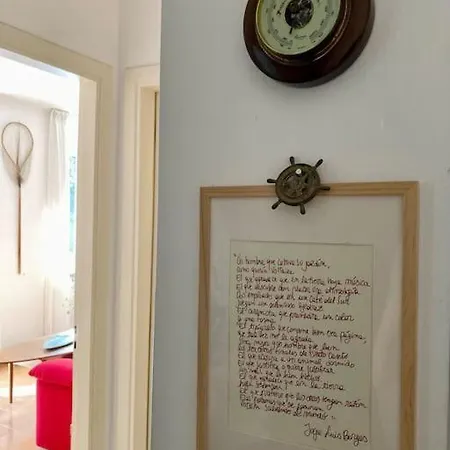 "Un hombre que cultiva su jardín,
como quería Voltaire.
El que agradece que en la tierra haya música
El que descubre con placer una etimología
Dos empleados que en un café del Sur
juegan un silencioso ajedrez
El ceramista que premedita un color
y una forma
El tipógrafo que compone bien esta página,
que tal vez no le agrada
Una mujer y un hombre que leen
los tercetos finales de cierto canto
El que acaricia a un animal dormido
El que justifica o quiere justificar
un mal que le han hecho
El que agradece que en la tierra
haya Stevenson
El que prefiere que los otros tengan razón
Esas personas que se ignoran
están salvando el mundo"
Jorge Luis Borges